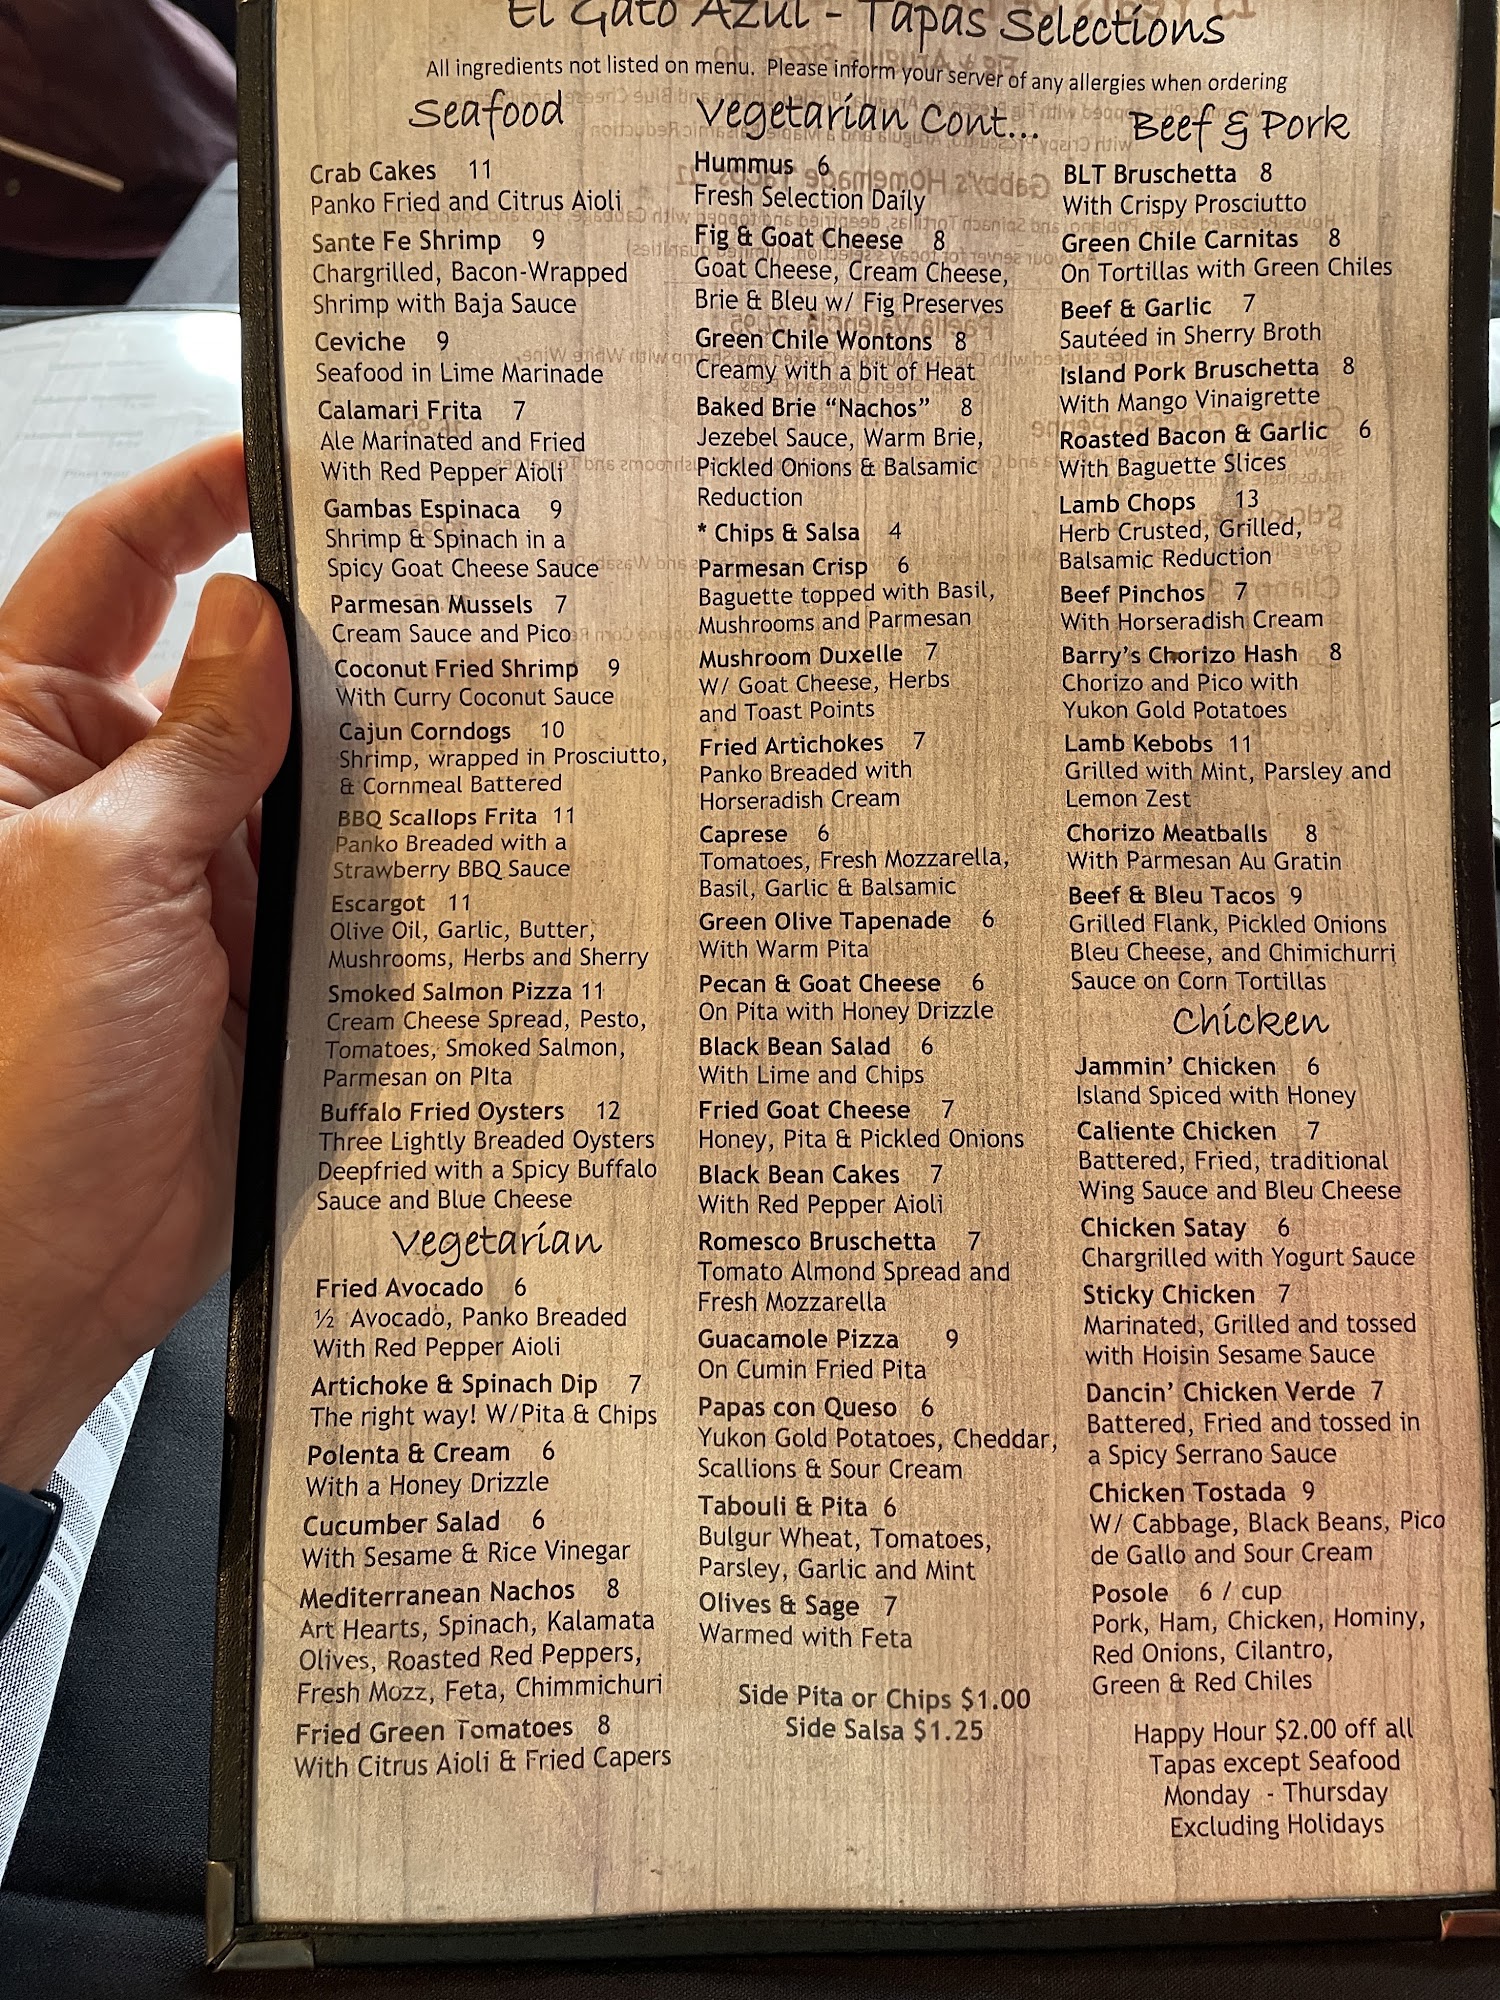 El Gato Azul - Tapas Selections
All ingredients not listed on menu. Please inform your server of any allergies when ordering
Seafood
Crab Cakes 11
Panko Fried and Citrus Aioli
Sante Fe Shrimp 9
Chargrilled, Bacon-Wrapped
Shrimp with Baja Sauce
Ceviche 9
Seafood in Lime Marinade
Calamari Frita 7
Ale Marinated and Fried
With Red Pepper Aioli
Gambas Espinaca 9
Shrimp & Spinach in a
Spicy Goat Cheese Sauce
Parmesan Mussels 7
Cream Sauce and Pico
Coconut Fried Shrimp 9
With Curry Coconut Sauce
Cajun Corndogs 10
Shrimp, wrapped in Prosciutto,
& Cornmeal Battered
BBQ Scallops Frita 11
Panko Breaded with a
Strawberry BBQ Sauce
Escargot 11
Olive Oil, Garlic, Butter,
Mushrooms, Herbs and Sherry
Smoked Salmon Pizza 11
Cream Cheese Spread, Pesto,
Tomatoes, Smoked Salmon,
Parmesan on PIta
Buffalo Fried Oysters 12
Three Lightly Breaded Oysters
Deepfried with a Spicy Buffalo
Sauce and Blue Cheese
Vegetarian
Fried Avocado 6
½ Avocado, Panko Breaded
With Red Pepper Aioli
Artichoke & Spinach Dip 7
The right way! W/Pita & Chips
Polenta & Cream 6
With a Honey Drizzle
Cucumber Salad 6
With Sesame & Rice Vinegar
Mediterranean Nachos 8
Art Hearts, Spinach, Kalamata
Olives, Roasted Red Peppers,
Fresh Mozz, Feta, Chimmichuri
Fried Green Tomatoes 8
With Citrus Aioli & Fried Capers
Vegetarian Cont...
Hummus 6
Fresh Selection Daily
Fig & Goat Cheese 8
Goat Cheese, Cream Cheese,
Brie & Bleu w/ Fig Preserves
Green Chile Wontons 8
Creamy with a bit of Heat
Baked Brie “Nachos” 8
Jezebel Sauce, Warm Brie,
Pickled Onions & Balsamic
Reduction
* Chips & Salsa 4
Parmesan Crisp 6
Baguette topped with Basil,
Mushrooms and Parmesan
Mushroom Duxelle 7
W/ Goat Cheese, Herbs
and Toast Points
Fried Artichokes 7
Panko Breaded with
Horseradish Cream
Caprese 6
Tomatoes, Fresh Mozzarella,
Basil, Garlic & Balsamic
Green Olive Tapenade 6
With Warm Pita
Pecan & Goat Cheese 6
On Pita with Honey Drizzle
Black Bean Salad 6
With Lime and Chips
Fried Goat Cheese 7
Honey, Pita & Pickled Onions
Black Bean Cakes 7
With Red Pepper Aioli
Romesco Bruschetta 7
Tomato Almond Spread and
Fresh Mozzarella
Guacamole Pizza 9
On Cumin Fried Pita
Papas con Queso 6
Yukon Gold Potatoes, Cheddar,
Scallions & Sour Cream
Tabouli & Pita 6
Bulgur Wheat, Tomatoes,
Parsley, Garlic and Mint
Olives & Sage 7
Warmed with Feta
Side Pita or Chips $1.00
Side Salsa $1.25
Beef & Pork
BLT Bruschetta 8
With Crispy Prosciutto
Green Chile Carnitas 8
On Tortillas with Green Chiles
Beef & Garlic 7
Sautéed in Sherry Broth
Island Pork Bruschetta 8
With Mango Vinaigrette
Roasted Bacon & Garlic 6
With Baguette Slices
Lamb Chops 13
Herb Crusted, Grilled,
Balsamic Reduction
Beef Pinchos 7
With Horseradish Cream
Barry's Chorizo Hash 8
Chorizo and Pico with
Yukon Gold Potatoes
Lamb Kebobs 11
Grilled with Mint, Parsley and
Lemon Zest
Chorizo Meatballs 8
With Parmesan Au Gratin
Beef & Bleu Tacos 9
Grilled Flank, Pickled Onions
Bleu Cheese, and Chimichurri
Sauce on Corn Tortillas
Chicken
Jammin' Chicken 6
Island Spiced with Honey
Caliente Chicken 7
Battered, Fried, traditional
Wing Sauce and Bleu Cheese
Chicken Satay 6
Chargrilled with Yogurt Sauce
Sticky Chicken 7
Marinated, Grilled and tossed
with Hoisin Sesame Sauce
Dancin' Chicken Verde 7
Battered, Fried and tossed in
a Spicy Serrano Sauce
Chicken Tostada 9
W/ Cabbage, Black Beans, Pico
de Gallo and Sour Cream
Posole 6 / cup
Pork, Ham, Chicken, Hominy,
Red Onions, Cilantro,
Green & Red Chiles
Happy Hour $2.00 off all
Tapas except Seafood
Monday - Thursday
Excluding Holidays